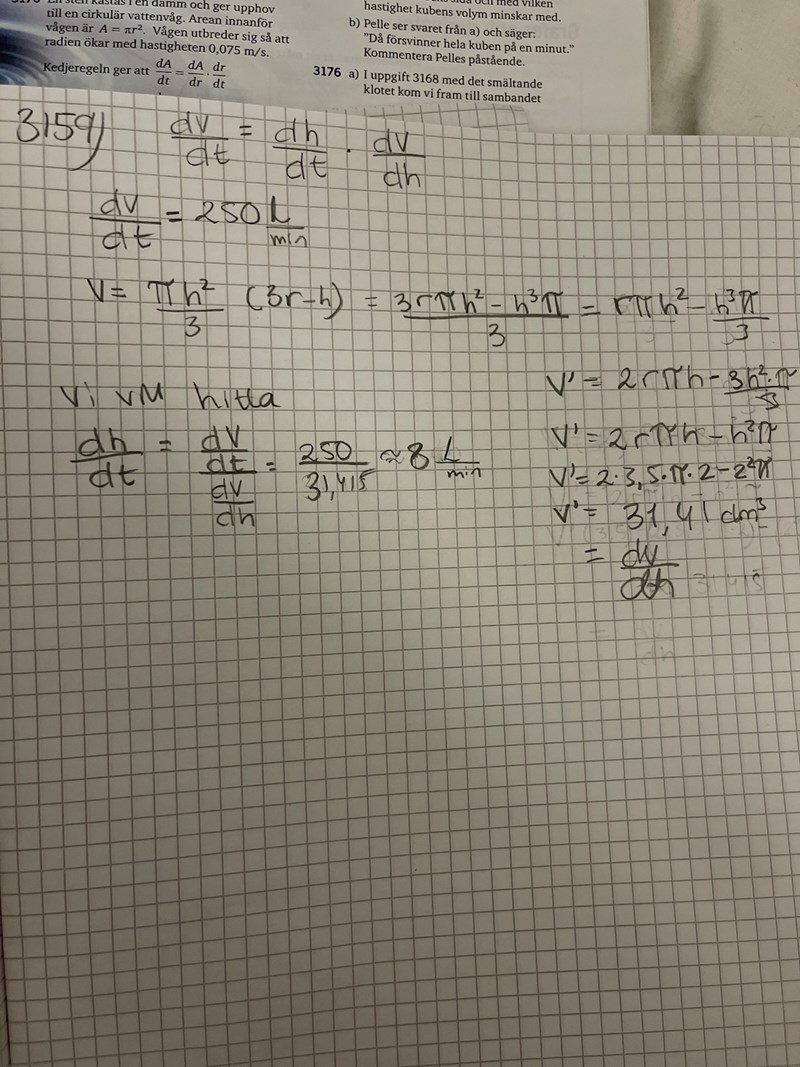 En sten kastas i en damm och ger upphov
till en cirkulär vattenvåg. Arean innanför
vågen är A = πr². Vågen utbreder sig så att
radien ökar med hastigheten 0,075 m/s.
Kedjeregeln ger att dA/dt = dA/dr · dr/dt
och med vilken
hastighet kubens volym minskar med.
b) Pelle ser svaret från a) och säger:
"Då försvinner hela kuben på en minut."
Kommentera Pelles påstående.
3176 a) I uppgift 3168 med det smältande
klotet kom vi fram till sambandet
3159) dv/dt = dh/dt · dv/dh
dv/dt = 250 L/min
V = πh²/3 (3r-h) = (3rπh² - h³π)/3 = rπh² - h³π/3
V' = 2rπh - 3h²·π/3
Vi vM hitta
V' = 2rπh - h²π
dh/dt = (dv/dt)/(dv/dh) = 250/31,415 ≈ 8 L/min
V' = 2·3,5·π·2 - 2²π
V' = 31,41 dm³
= dv/dh